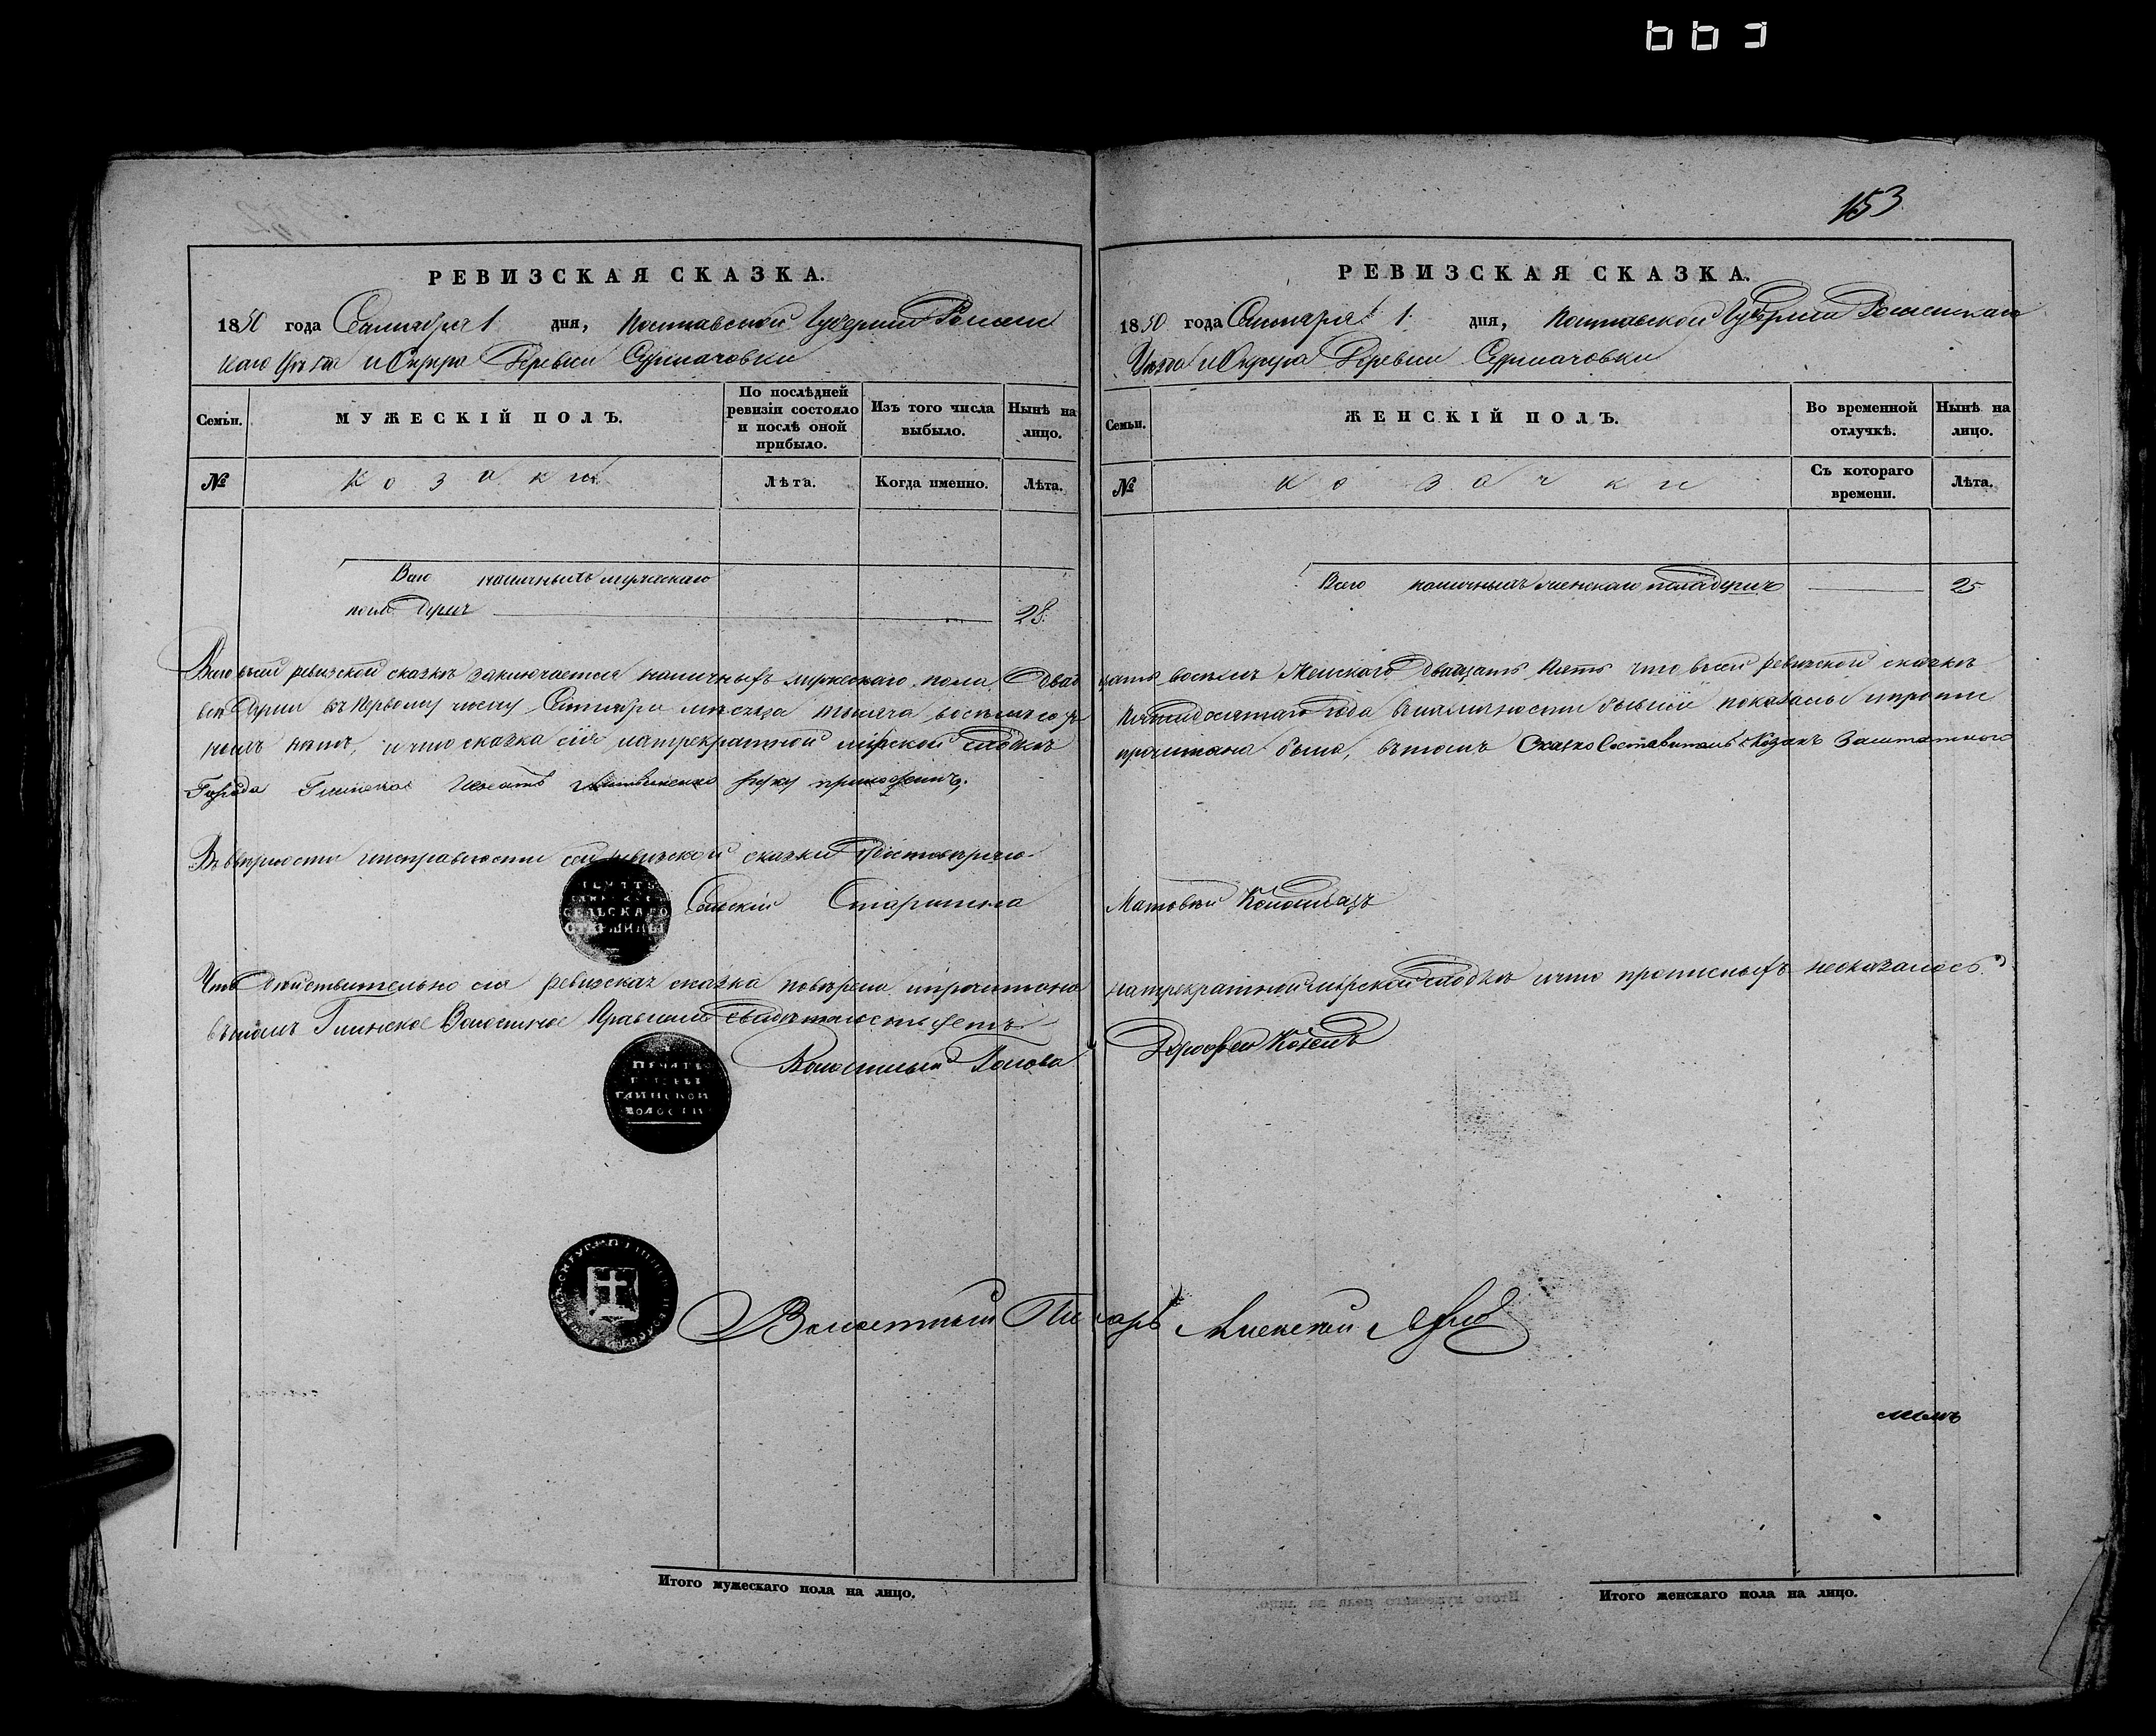 153
РЕВИЗСКАЯ СКАЗКА.
1850 года Сентября 1 дня, Полтавской Губернии Ромен
каго Уѣзда и Округа Деревни Сурмачовки
Семьи.
МУЖЕСКІЙ ПОЛЪ.
По послѣдней ревизіи состояло и послѣ оной прибыло.
Изъ того числа выбыло.
Нынѣ на лицо.
№
Козаки
Лѣта.
Когда именно.
Лѣта.
Всего наличныхъ мужескаго
пола душъ 28.
РЕВИЗСКАЯ СКАЗКА.
1850 года Сентября 1 дня, Полтавской Губернии Роменскаго
Уѣзда и Округа Деревни Сурмачовки
Семьи.
ЖЕНСКІЙ ПОЛЪ.
Во временной отлучкѣ.
Нынѣ на лицо.
№
Козачки
Съ котораго времени.
Лѣта.
Всего наличныхъ женскаго пола душъ 25
Всего въ сей ревизской сказкѣ заключается наличныхъ мужескаго пола двад цать восемь Женского двадцать пять что въ сей ревизской сказкѣ
все души къ первому числу Сентября мѣсяца тысяча восемьсо пятидесятаго года въ наличности бывшіи показаны и противу
и что сказка сія на трекратной мірской сходкѣ прочитана была, въ томъ Сказко Составитель Козакъ Заштатного
Города Глинска руку приложилъ.
Въ вѣрности и исправности сей ревизской сказки удостовѣряю
Селскій Старшина Матовѣй
СЕЛЬСКАГО
СТАРШИНЫ
Что дѣйствительно сія ревизская сказка повѣрена и прочитана на трекратной мірской сходкѣ и что прописныхъ неоказалось
въ томъ Глинское Волостное Правление свидѣтельствуетъ
Волостный Голова Дорофей Козелъ
ПЕЧАТЬ
ГЛИНСКОЙ
ВОЛОСТИ
Волостный Писарь
Итого мужескаго пола на лицо.
Итого женскаго пола на лицо.